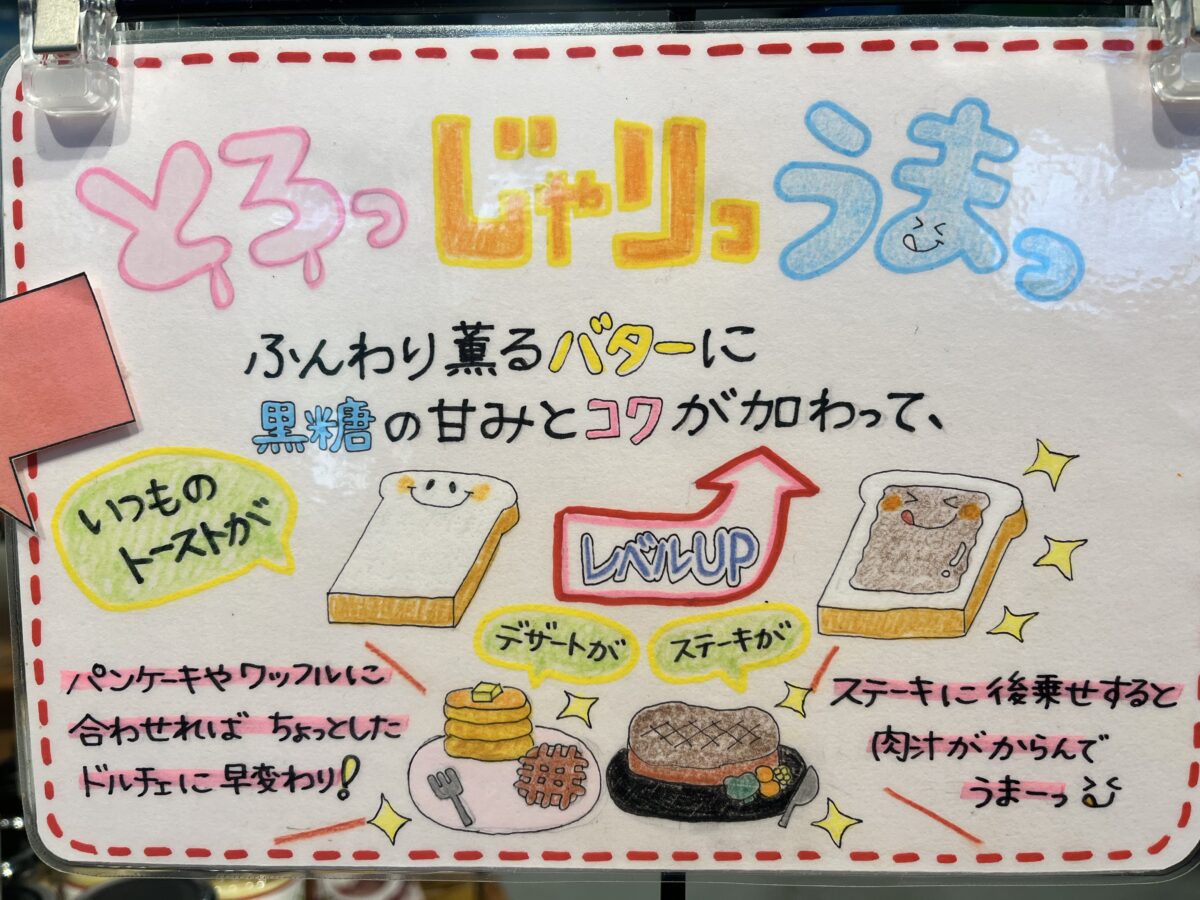 とろっ じゃりっ うまっ
ふんわり薫るバターに
黒糖の甘みとコクが加わって、
いつもの
トーストが
レベルUP
デザートが
ステーキが
パンケーキやワッフルに
合わせれば ちょっとした
ドルチェに早変わり!
ステーキに後乗せすると
肉汁がからんで
うまーっ